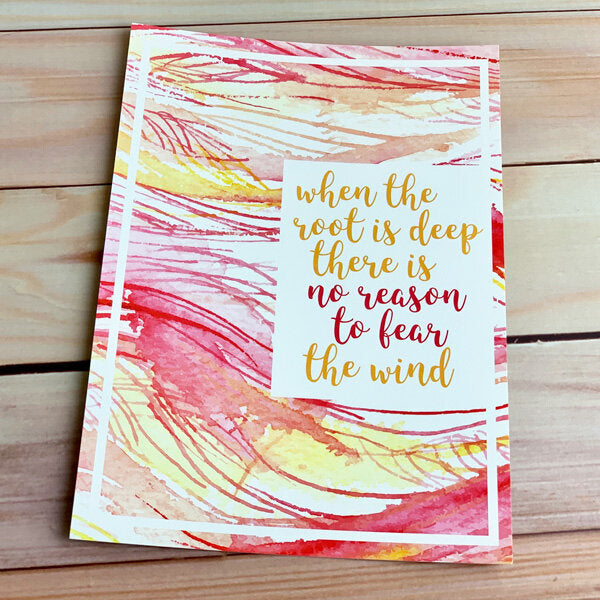 when the
root is deep
there is
no reason
to fear
the wind